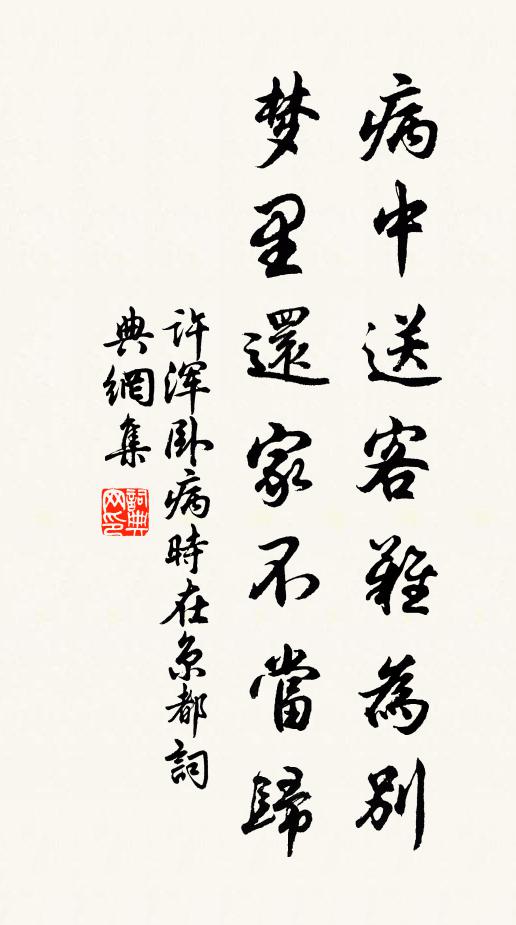 病中送客難為別
梦里還家不當歸
許渾卧病時在京都詞
典網集
詞典网印